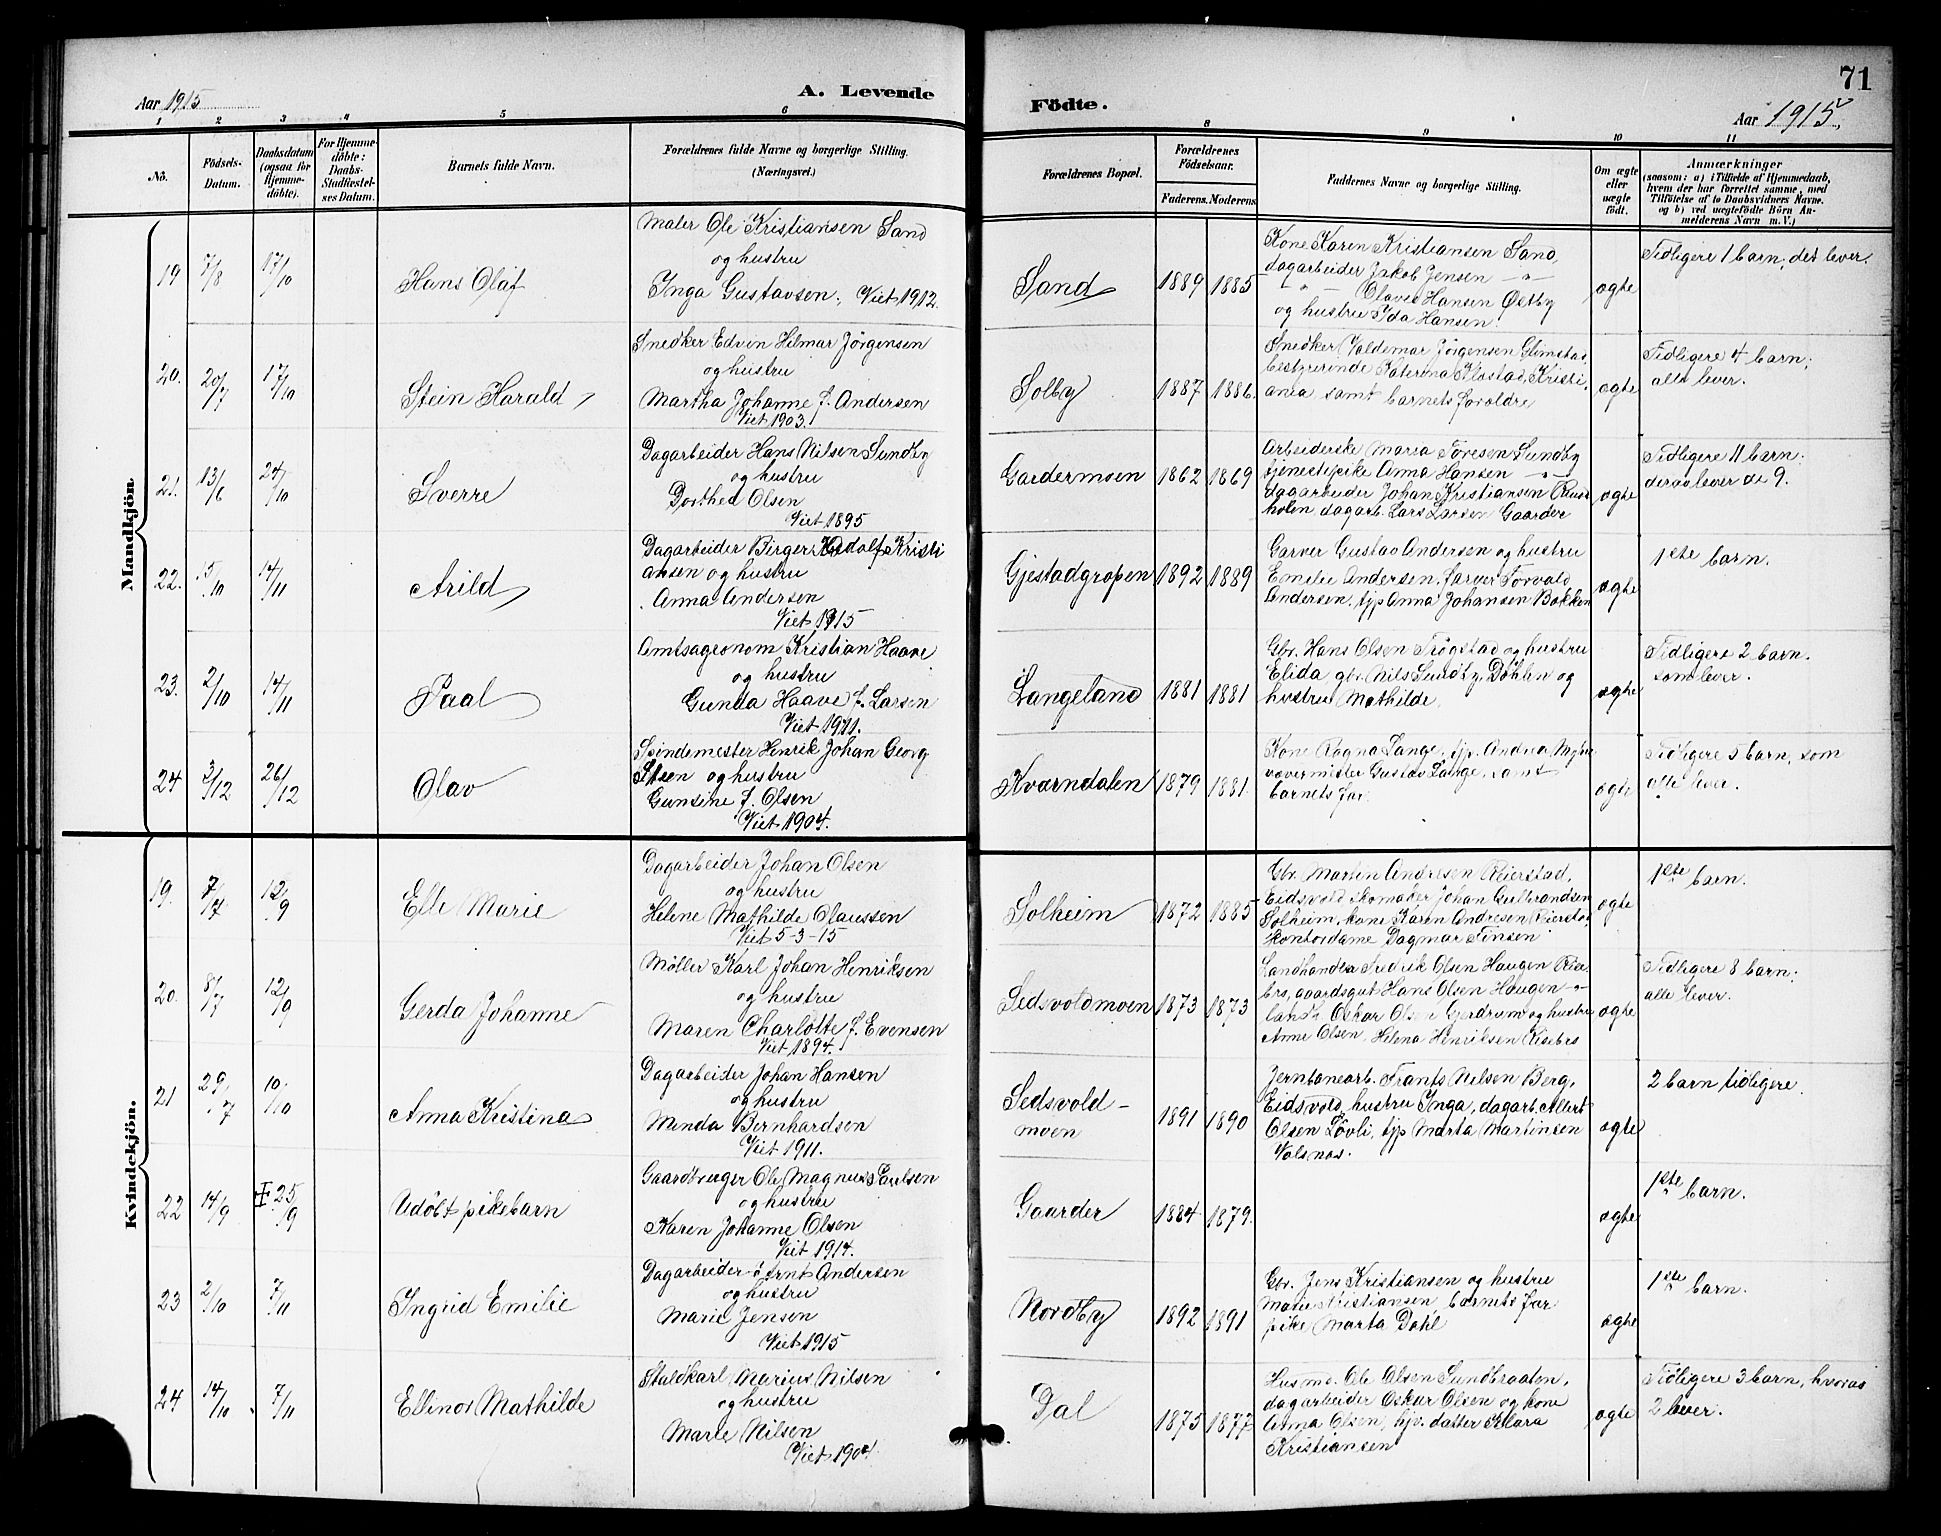 Aar 1915
A. Levende
Födte.
71
Aar 1915
1 2 3 4 5 6
8 9 10 11
No.
Födsels-
Datum.
Daabsdatum
(ogsaa for
Hjemme-
döbte).
For Hjemme-
döbte:
Daabs-
Stadfæstel-
ses Datum.
Barnets fulde Navn.
Forældrenes fulde Navne og borgerlige Stilling.
(Næringsvei.)
Forældrenes Bopæl.
Forældrenes
Födselsaar.
Faderens. Moderens
Faddernes Navne og borgerlige Stilling.
Om ægte
eller
uægte
født.
Anmærkninger
(saasom: a) i Tilfælde af Hjemmedaab,
hvem der har forrettet samme, med
Tilföielse af to Daabsvidners Navne.
og b) ved uægtefödte Börn An-
melderens Navn m. V.)
Mandkjön
19 7/8 17/10
Hans Olaf
Maler Ole Kristiansen Sand
og hustru
Inga Gustavsen. Viet 1912.
Sand
1889 1885
Kone Karen Kristiansen Sand,
dagarbeider Jakob Jensen - " -
- " - Olaves Hansen Østby
og hustru Ida Hansen.
ægte
Tidligere 1 barn, det lever.
20. 20/7 17/10
Stein Harald
Snedker Edvin Hilmar Jörgensen
og hustru
Martha Johanne f. Andersen
Viet 1903.
Solby
1887 1886.
Snedker Valdemar Jørgensen Glimstad,
bestyrerinde Katerina Kristi-
ania samt barnets forældre
ægte
Tidligere 4 barn;
alle lever.
21. 13/6 24/10
Sverre
Dagarbeider Hans Nilsen Sundby
og hustru
Dorthea Olsen
Viet 1895
Gardermoen
1862 1869
Arbeiderske Maria Toresen Sundby
tjenestepike Anna Hansen - " -
dagarbeider Johan Kristiansen
holen, dagarb. Lars Larsen Gaarder
ægte
Tidligere 11 barn;
derav lever de 9.
22. 15/10 14/11
Arild
Dagarbeider Birger Adolf Kristi
ansen og hustru
Anna Andersen
Viet 1915
Gjestadgropen
1892 1889
Garver Gustav Andersen og hustru
Emilie Andersen. Farver Torvald
Andersen, tjp Anna Johansen Bakken
ægte
1ste barn.
23. 2/10 14/11
Paal
Amtsagronom Kristian Haave
og hustru
Gunda Haave f. Larsen
Viet 1911.
Langeland
1881 1881
Gbr. Hans Olsen Trøgstad og hustru
Elida gbr. Nils Sundby, Døhlen og
hustru Mathilde
ægte
Tidligere 2 barn.
som lever.
24 3/12 26/12
Olav
Spindemester Henrik Johan Georg
Steen og hustru
Gunsine f. Olsen
Viet 1904.
Kværndalen
1879 1881.
Kone Ragna Lange, tjp. Andrea
vævermester Gustav Lange, samt
barnets far.
ægte
Tidligere 5 barn, som
alle lever.
Kvindekjön.
19. 7/7 12/9
Elle Marie
Dagarbeider Johan Olsen
og hustru
Helene Mathilde Olaussen
Viet 5-3-15
Solheim
1872 1885
Gbr. Martin Andresen Reierstad,
Eidsvold skomaker Johan Gulbrandsen
Solheim, kone Karen Andresen Reierstad,
kontordame Dagmar Finsen
ægte
1ste barn.
20. 8/7 12/9
Gerda Johanne
Møller Karl Johan Henriksen
og hustru
Maren Charlotte f. Evensen
Viet 1894.
Sedsvoldmoen
1873 1873
Landhandler Fredrik Olsen Haugen Rise-
bro, gaardsgut Hans Olsen Haugen - " -
landh. Oskar Olsen Gjerdrum og hustru
Anne Olsen, Helena Henriksen Risebro
ægte
Tidligere 8 barn;
alle lever.
21 29/7 10/10
Anna Kristina
Dagarbeider Johan Hansen
og hustru
Minda Bernhardsen
Viet 1911.
Sedsvold-
moen
1891 1890
Jernbanearb. Frants Nilsen Berg,
Eidsvold, hustru Inga, dagarb. Albert
Olsen Løvli, tjp Marta Martinsen
Valsnæs.
ægte
2 barn tidligere.
22 14/9 ‡ 25/9
Udöbt pikebarn
Gaardbruger Ole Magnus Paulsen
og hustru
Karen Johanne Olsen
Viet 1914.
Gaarder
1884 1879.
ægte
1ste barn.
23 2/10 7/11
Ingrid Emilie
Dagarbeider Arnt Andersen
og hustru
Marie Jensen
Viet 1915
Nordby
1892 1891
Gbr. Jens Kristiansen og hustru
Marie Kristiansen, barnets far
pike Marta Dahl
ægte
1ste barn.
24 14/10 7/11
Ellinor Mathilde
Staldkarl Marius Nilsen
og hustru
Marie Nilsen
Viet 1904.
Dal
1875 1877
Husmd. Ole Olsen Sundbraaten,
dagarbeider Oskar Olsen og kone
Anna Olsen, tjp. datter Klara
Kristiansen
ægte
Tidligere 3 barn, hvorav
2 lever.